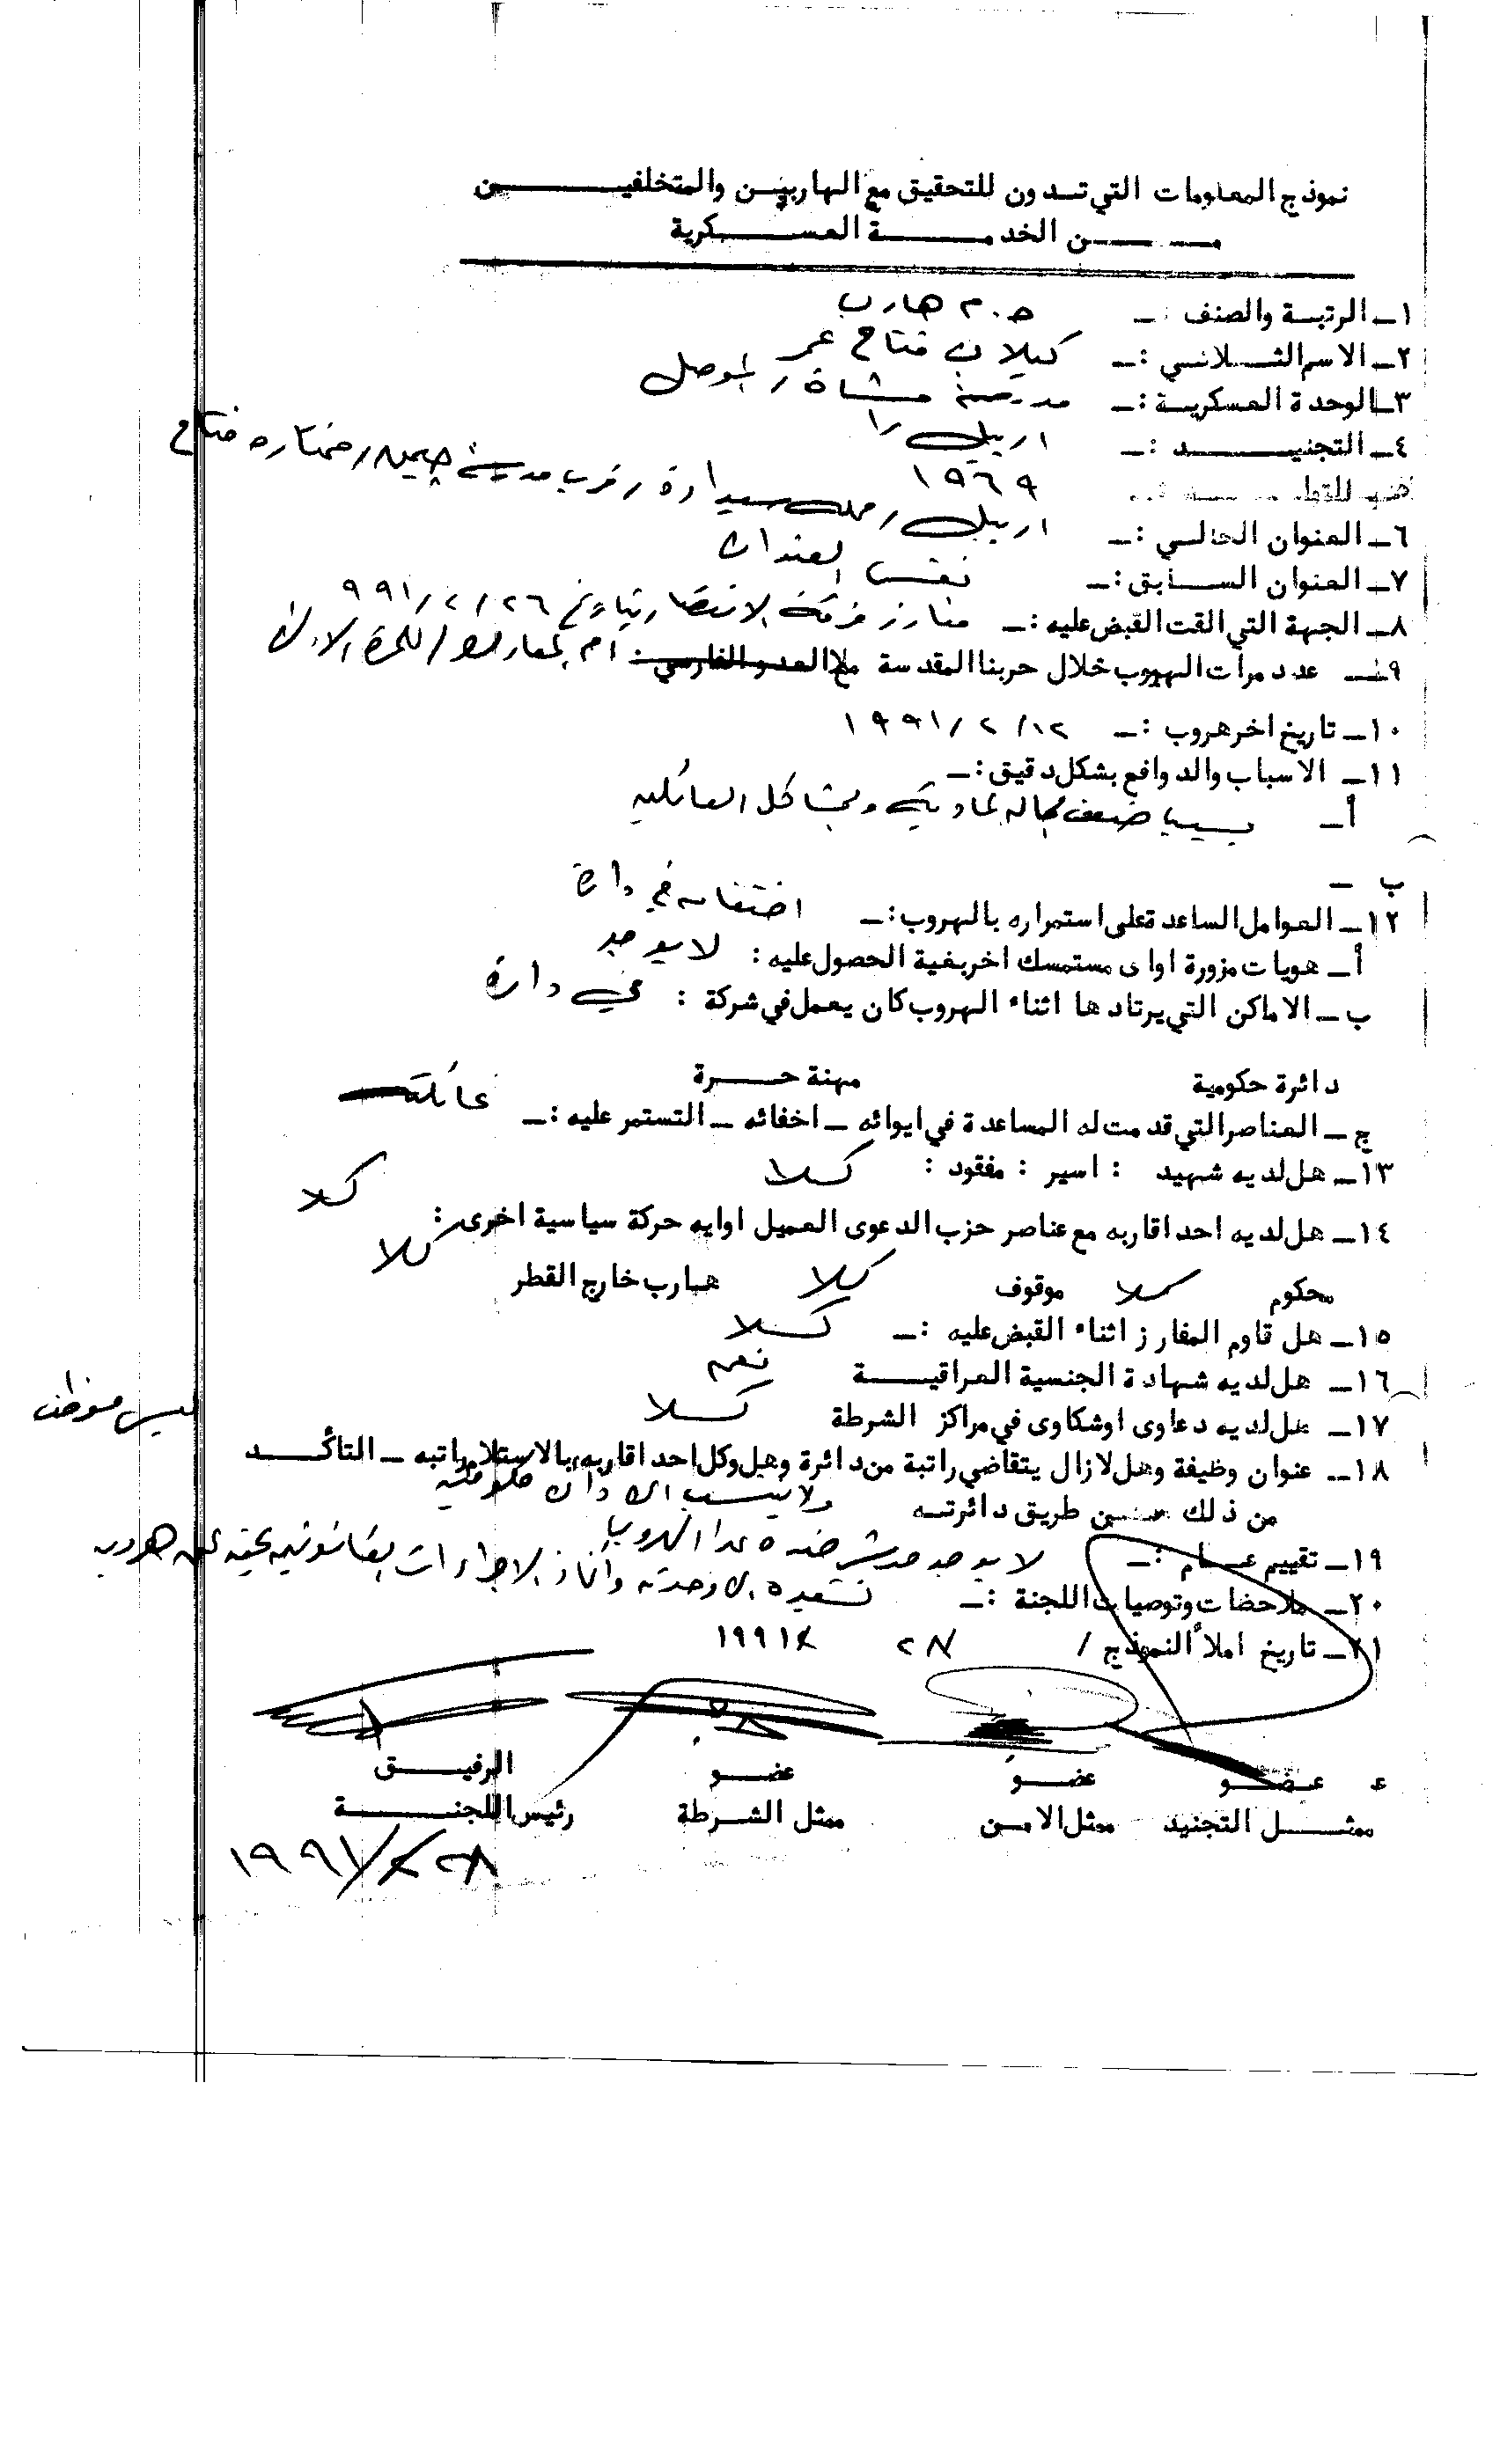 نموذج المعلومات التي تدون للتحقيق مع الهاربين والمتخلفين
من الخدمة العسكرية
١ـ الرتبة والصنف :ـ ج.م هارب
٢ـ الاسم الثلاثي :ـ كيلان فتاح عمر
٣ـ الوحدة العسكرية :ـ مدرسة مشاة / الموصل
٤ـ التجنيد :ـ اربيل / ١
١٩٦٩
٦ـ العنوان الحالي :ـ اربيل / محلة سيداوة / قرب مدرسة / مختاره فتاح
٧ـ العنوان السابق :ـ نفس العنوان
٨ـ الجهة التي القت القبض عليه :ـ مفارز فرقة الانتصار بتاريخ ٢٦ / ٢ / ٩٩١
٩ـ عدد مرات الهروب خلال حربنا المقدسة مع العدو الفارسي : ام المعارك / المرة الاولى
١٠ـ تاريخ اخر هروب :ـ ١٢ / ٢ / ١٩٩١
١١ـ الاسباب والدوافع بشكل دقيق :ـ
أـ بسبب ضعف حاله المادية ومشاكل العائلية
ب ـ
١٢ـ العوامل الساعدة على استمراره بالهروب :ـ اختفائه في داره
أـ هويات مزورة اواى مستمسك اخر بغية الحصول عليه : لا يوجد
ب ـ الاماكن التي يرتادها اثناء الهروب كان يعمل في شركة : في داره
دائرة حكومية مهنة حرة
ج ـ العناصر التي قدمت له المساعدة في ايوائه ـ اخفائه ـ التستمر عليه :ـ عائلته
١٣ـ هل لديه شهيد : اسير : مفقود : كلا
١٤ـ هل لديه احد اقاربه مع عناصر حزب الدعوى العميل اوايه حركة سياسية اخرى : كلا
محكوم كلا موقوف كلا هارب خارج القطر كلا
١٥ـ هل قاوم المفارز اثناء القبض عليه :ـ كلا
١٦ـ هل لديه شهادة الجنسية العراقية نعم
١٧ـ هل لديه دعاوى اوشكاوى في مراكز الشرطة كلا
١٨ـ عنوان وظيفة وهل لازال يتقاضي راتبة من دائرة وهل وكل احد اقاربه بالاستلام راتبه ـ التأكد ليس موظف
من ذلك عن طريق دائرته ولا ينسب الى دائرة حكومية
١٩ـ تقييم عام :ـ لا يوجد مؤشر ضده عدا الهروب
٢٠ـ ملاحضات وتوصيات اللجنة :ـ تسفيره الى وحدته واتخاذ الاجراءات القانونية بحقه عن هروبه
٢١ـ تاريخ املأ النموذج / ٢٨ / ٢ / ١٩٩١
عضو عضو عضو الرفيق
ممثل التجنيد ممثل الامن ممثل الشرطة رئيس اللجنة
٢٨ / ٢ / ١٩٩١